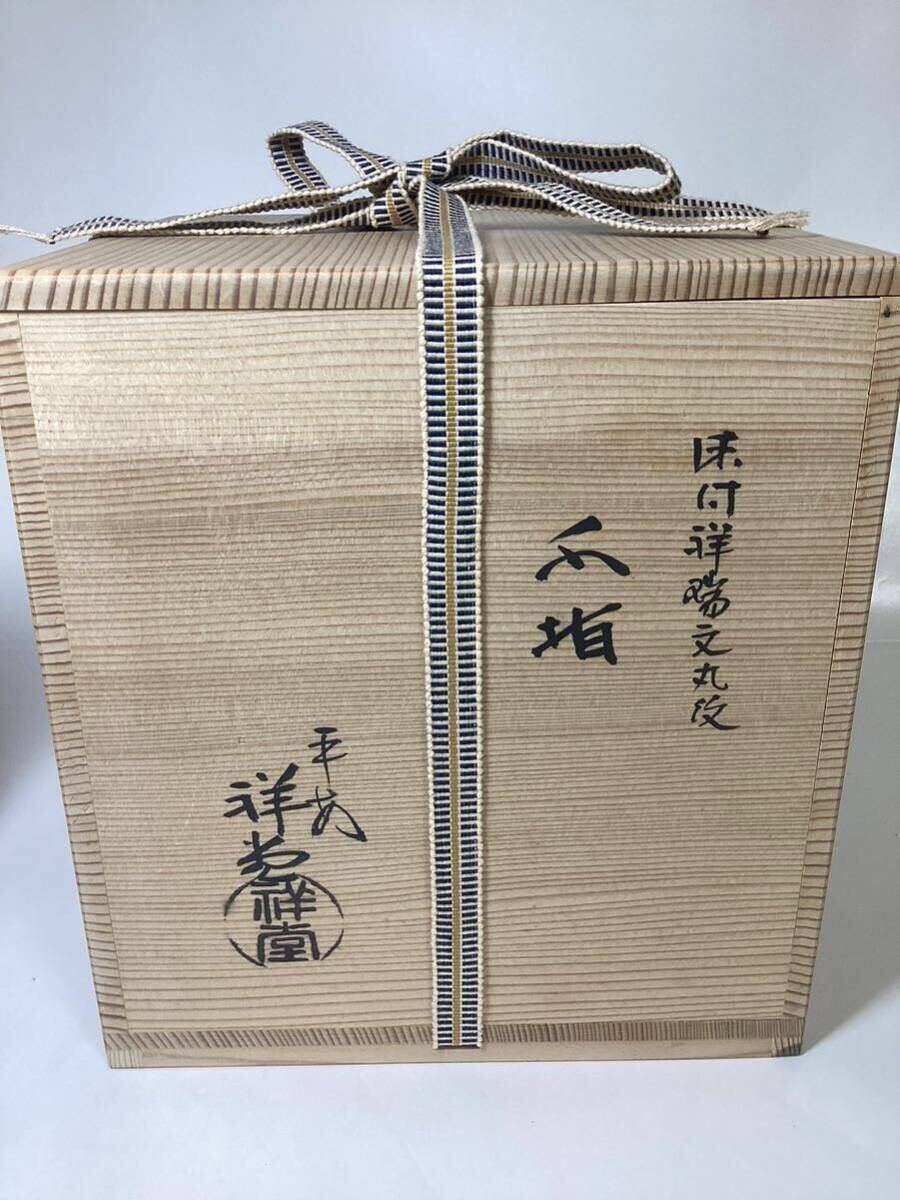 染付祥瑞文丸紋
水指
平安
祥堂
祥堂